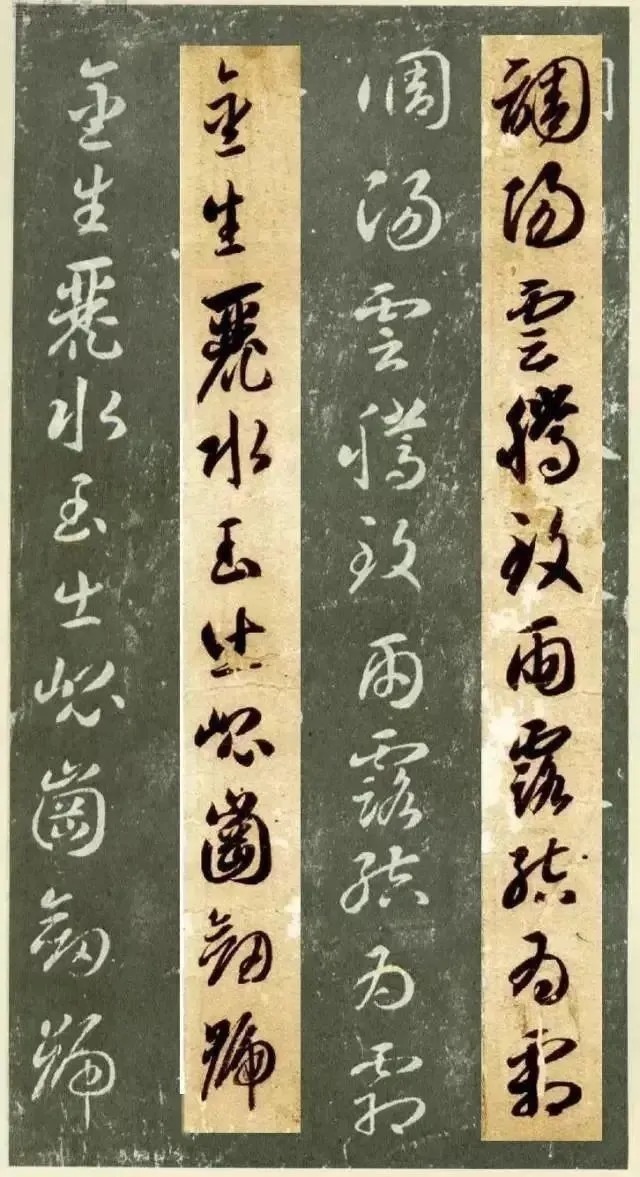 調陽雲騰致雨露結為霜
調陽雲騰致雨露結為霜
金生麗水玉出崑崗劍號
金生麗水玉出崑崗劍號